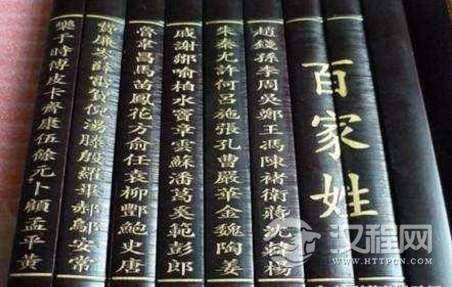 百家姓
趙錢孫李周吳鄭王馮陳褚衛蔣沈韓楊
朱秦尤許何呂施張孔曹嚴華金魏陶姜
戚謝鄒喻柏水竇章雲蘇潘葛奚範彭郎
魯韋昌馬苗鳳花方俞任袁柳酆鮑史唐
費廉岑薛雷賀倪湯滕殷羅畢郝鄔安常
樂于時傅皮卞齊康伍餘元卜顧孟平黃
汉程网